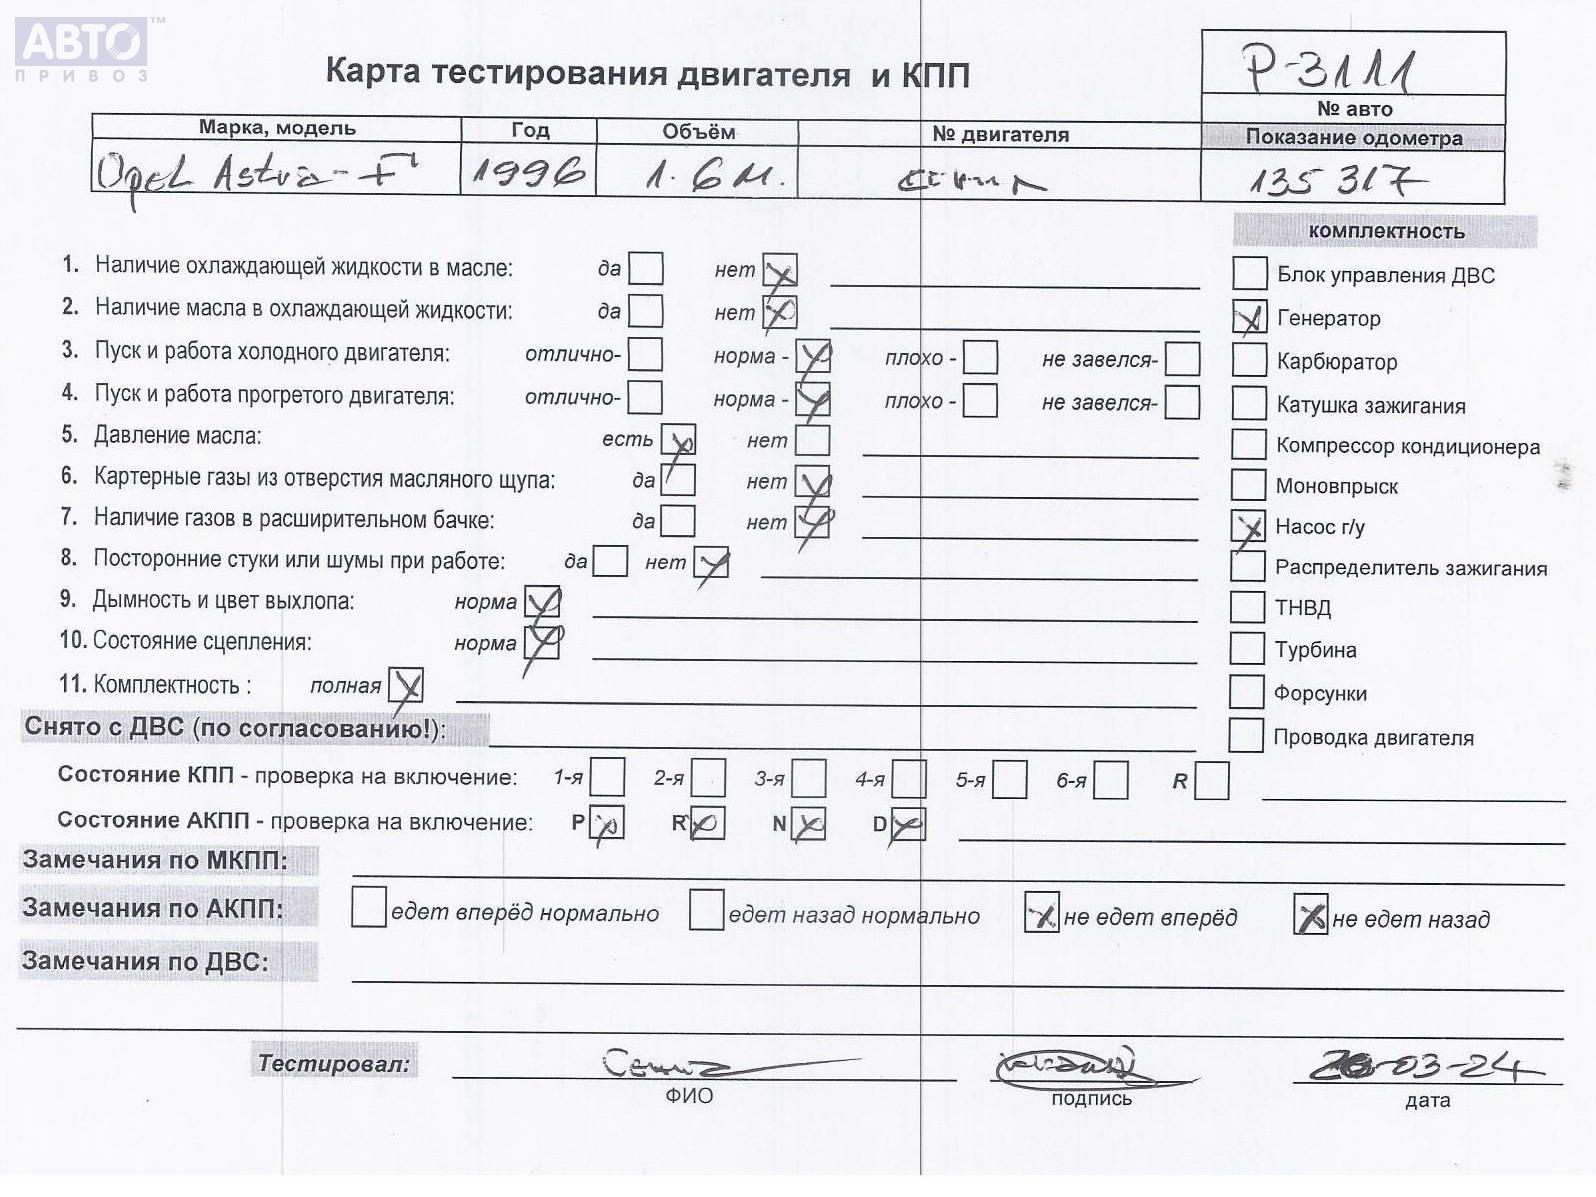 АВТО™
ПРИВОЗ
Карта тестирования двигателя и КПП
Р-3111
№ авто
Марка, модель Год Объём № двигателя Показание одометра
Opel Astra-F 1996 1.6 м. 135 317
комплектность
1. Наличие охлаждающей жидкости в масле: да нет
Блок управления ДВС
2. Наличие масла в охлаждающей жидкости: да нет
Генератор
3. Пуск и работа холодного двигателя: отлично- норма - плохо - не завелся-
Карбюратор
4. Пуск и работа прогретого двигателя: отлично- норма - плохо - не завелся-
Катушка зажигания
5. Давление масла: есть нет
Компрессор кондиционера
6. Картерные газы из отверстия масляного щупа: да нет
Моновпрыск
7. Наличие газов в расширительном бачке: да нет
Насос г/у
8. Посторонние стуки или шумы при работе: да нет
Распределитель зажигания
9. Дымность и цвет выхлопа: норма
ТНВД
10. Состояние сцепления: норма
Турбина
11. Комплектность : полная
Форсунки
Снято с ДВС (по согласованию!):
Проводка двигателя
Состояние КПП - проверка на включение: 1-я 2-я 3-я 4-я 5-я 6-я R
Состояние АКПП - проверка на включение: P R N D
Замечания по МКПП:
Замечания по АКПП: едет вперёд нормально едет назад нормально не едет вперёд не едет назад
Замечания по ДВС:
Тестировал: -03-24
ФИО подпись дата